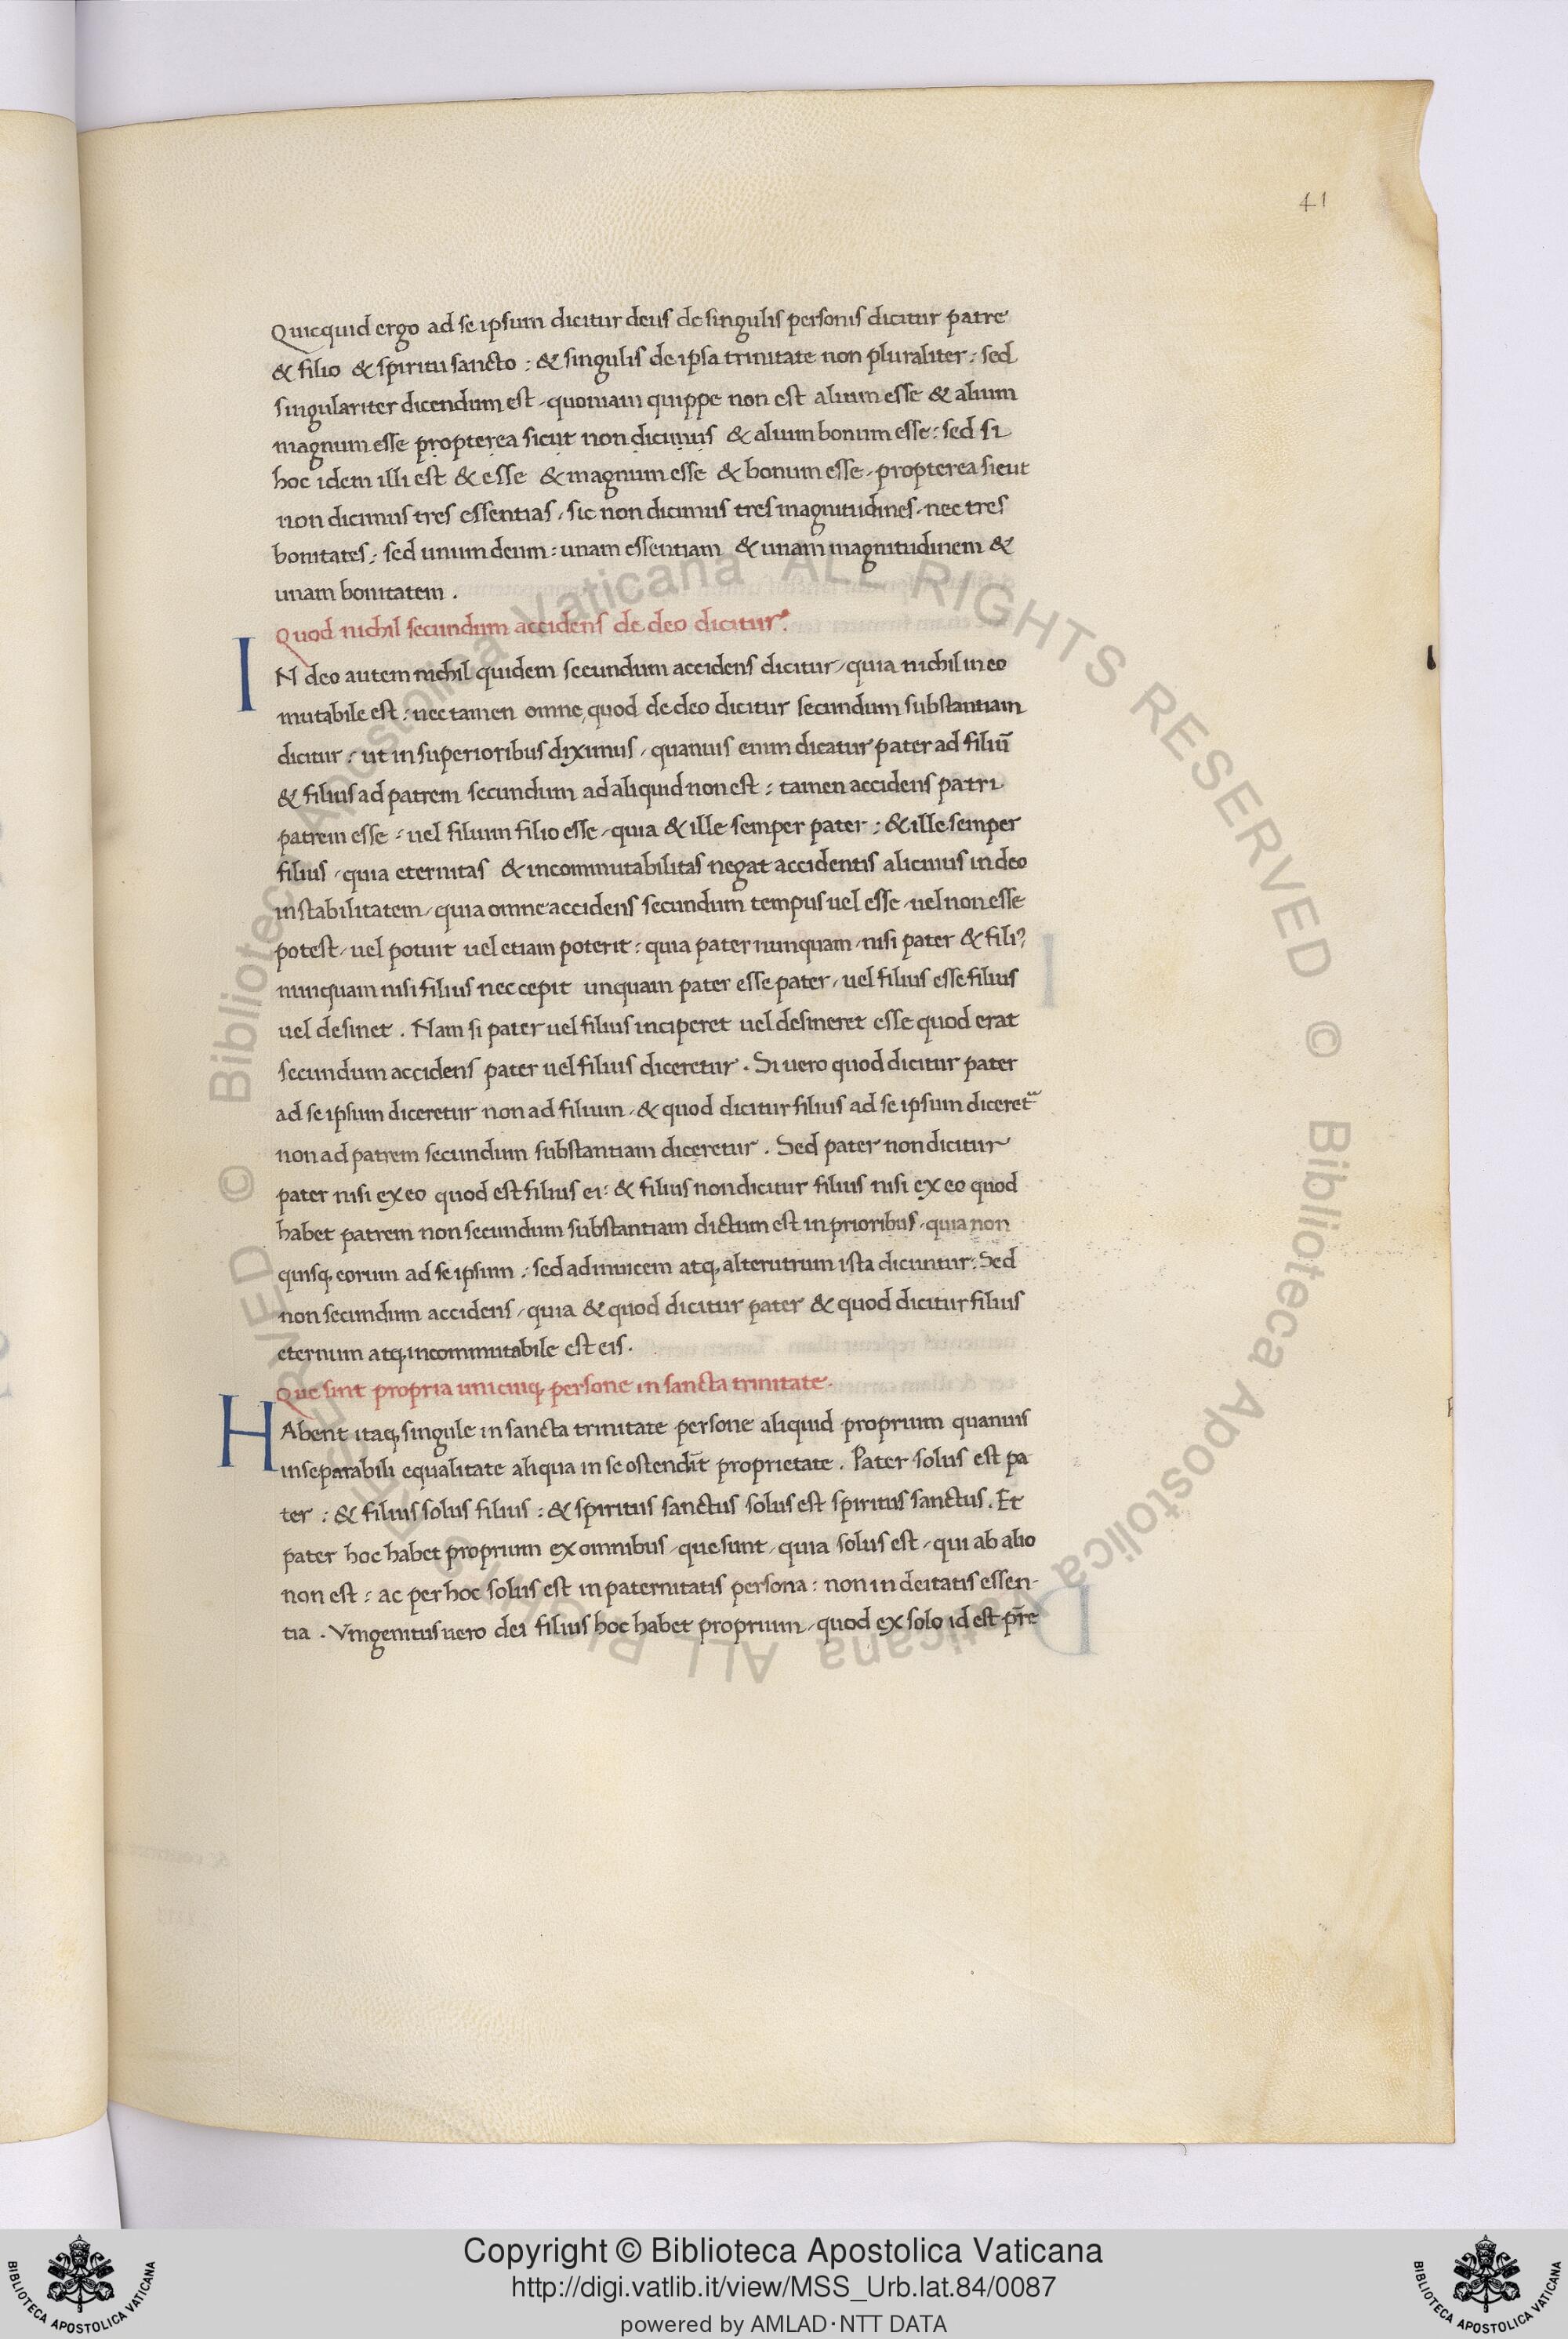 41
Quicquid ergo ad se ipsum dicitur deus de singulis personis dicitur patre
& filio & spiritu sancto : & singulis de ipsa trinitate non pluraliter : sed
singulariter dicendum est , quoniam quippe non est alium esse & alium
magnum esse propterea sicut non dicimus & alium bonum esse : sed si
hoc idem illi est & esse & magnum esse & bonum esse , propterea sicut
non dicimus tres essentias , sic non dicimus tres magnitudines , nec tres
bonitates : sed unum deum : unam essentiam & unam magnitudinem &
unam bonitatem .
Quod nichil secundum accidens de deo dicitur .
IN deo autem nichil quidem secundum accidens dicitur , quia nichil in eo
mutabile est : nec tamen omne , quod de deo dicitur secundum substantiam
dicitur : ut in superioribus diximus , quanuis enim dicatur pater ad filiū
& filius ad patrem secundum ad aliquid non est : tamen accidens patri
patrem esse : uel filium filio esse , quia & ille semper pater : & ille semper
filius , quia eternitas & incommutabilitas negat accidentis alicuius in deo
instabilitatem , quia omne accidens secundum tempus uel esse , uel non esse
potest , uel potuit uel etiam poterit : quia pater nunquam , nisi pater & fili᾽
nunquam nisi filius nec cepit unquam pater esse pater , uel filius esse filius
uel desinet . Nam si pater uel filius inciperet uel desineret esse quod erat
secundum accidens pater uel filius diceretur . Si uero quod dicitur pater
ad se ipsum diceretur non ad filium , & quod dicitur filius ad se ipsum diceret᷑
non ad patrem secundum substantiam diceretur . Sed pater non dicitur
pater nisi ex eo quod est filius ei : & filius non dicitur filius nisi ex eo quod
habet patrem non secundum substantiam dictum est in prioribus , quia non
quisq, eorum ad se ipsum : sed ad inuicem atq, alterutrum ista dicuntur : Sed
non secundum accidens , quia & quod dicitur pater & quod dicitur filius
eternum atq, incommutabile est eis .
Que sint propria unicuiq, persone in sancta trinitate .
HAbent itaq, singule in sancta trinitate persone aliquid proprium quanuis
inseparabili equalitate aliqua in se ostendīt proprietate . Pater solus est pa
ter : & filius solus filius : & spiritus sanctus solus est spiritus sanctus . Et
pater hoc habet proprium ex omnibus , que sunt , quia solus est , qui ab alio
non est : ac per hoc solus est in paternitatis persona : non in deitatis essen-
tia . Vnigenitus uero dei filius hoc habet proprium , quod ex solo id est p̄re
© Biblioteca Apostolica Vaticana ALL RIGHTS RESERVED © Biblioteca Apostolica Vaticana ALL RIGHTS RESERVED
Copyright © Biblioteca Apostolica Vaticana
http://digi.vatlib.it/view/MSS_Urb.lat.84/0087
powered by AMLAD·NTT DATA
BIBLIOTECA APOSTOLICA VATICANA
BIBLIOTECA APOSTOLICA VATICANA